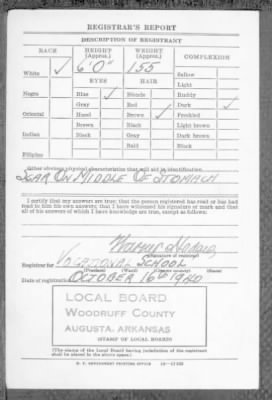 REGISTRAR'S REPORT
DESCRIPTION OF REGISTRANT
RACE HEIGHT (Approx.) WEIGHT (Approx.) COMPLEXION
White ✓ 6' 0" 155 Sallow
EYES HAIR Light
Negro Blue ✓ Blonde Ruddy
Gray Red Dark ✓
Oriental Hazel Brown ✓ Freckled
Brown Black Light brown
Indian Black Gray Dark brown
Bald Black
Filipino
Other obvious physical characteristics that will aid in identification
SCAR ON MIDDLE OF STOMACH
I certify that my answers are true; that the person registered has read or has had
read to him his own answers; that I have witnessed his signature or mark and that
all of his answers of which I have knowledge are true, except as follows:
(Signature of registrar)
Registrar for VOCATIONAL SCHOOL
(Precinct) (Ward) (City or county) (State)
Date of registration OCTOBER 16th 1940
LOCAL BOARD
WOODRUFF COUNTY
AUGUSTA, ARKANSAS
(STAMP OF LOCAL BOARD)
(The stamp of the Local Board having jurisdiction of the registrant
shall be placed in the above space.)
U. S. GOVERNMENT PRINTING OFFICE